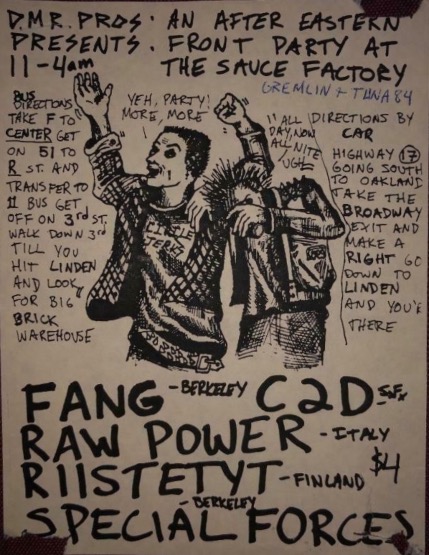 D.M.R. PROS. AN AFTER EASTERN
PRESENTS: FRONT PARTY AT
11-4am THE SAUCE FACTORY
GREMLIN + TUNA 84
BUS
DIRECTIONS
TAKE F TO
CENTER GET
ON 51 TO
R ST. AND
TRANSFER TO
11 BUS GET
OFF ON 3rd ST.
WALK DOWN 3rd
TILL YOU
HIT LINDEN
AND LOOK
FOR BIG
BRICK
WAREHOUSE
YEH, PARTY!
MORE, MORE
ALL
DAY, NOW
ALL NITE
UGH
CIRCLE
JERKS
DIRECTIONS BY
CAR
HIGHWAY 17
GOING SOUTH
TO OAKLAND
TAKE THE
BROADWAY
EXIT AND
MAKE A
RIGHT GO
DOWN TO
LINDEN
AND YOU'E
THERE
FANG - BERKELEY C2D - S.F.
RAW POWER - ITALY
RIISTETYT - FINLAND $4
SPECIAL FORCES - BERKELEY